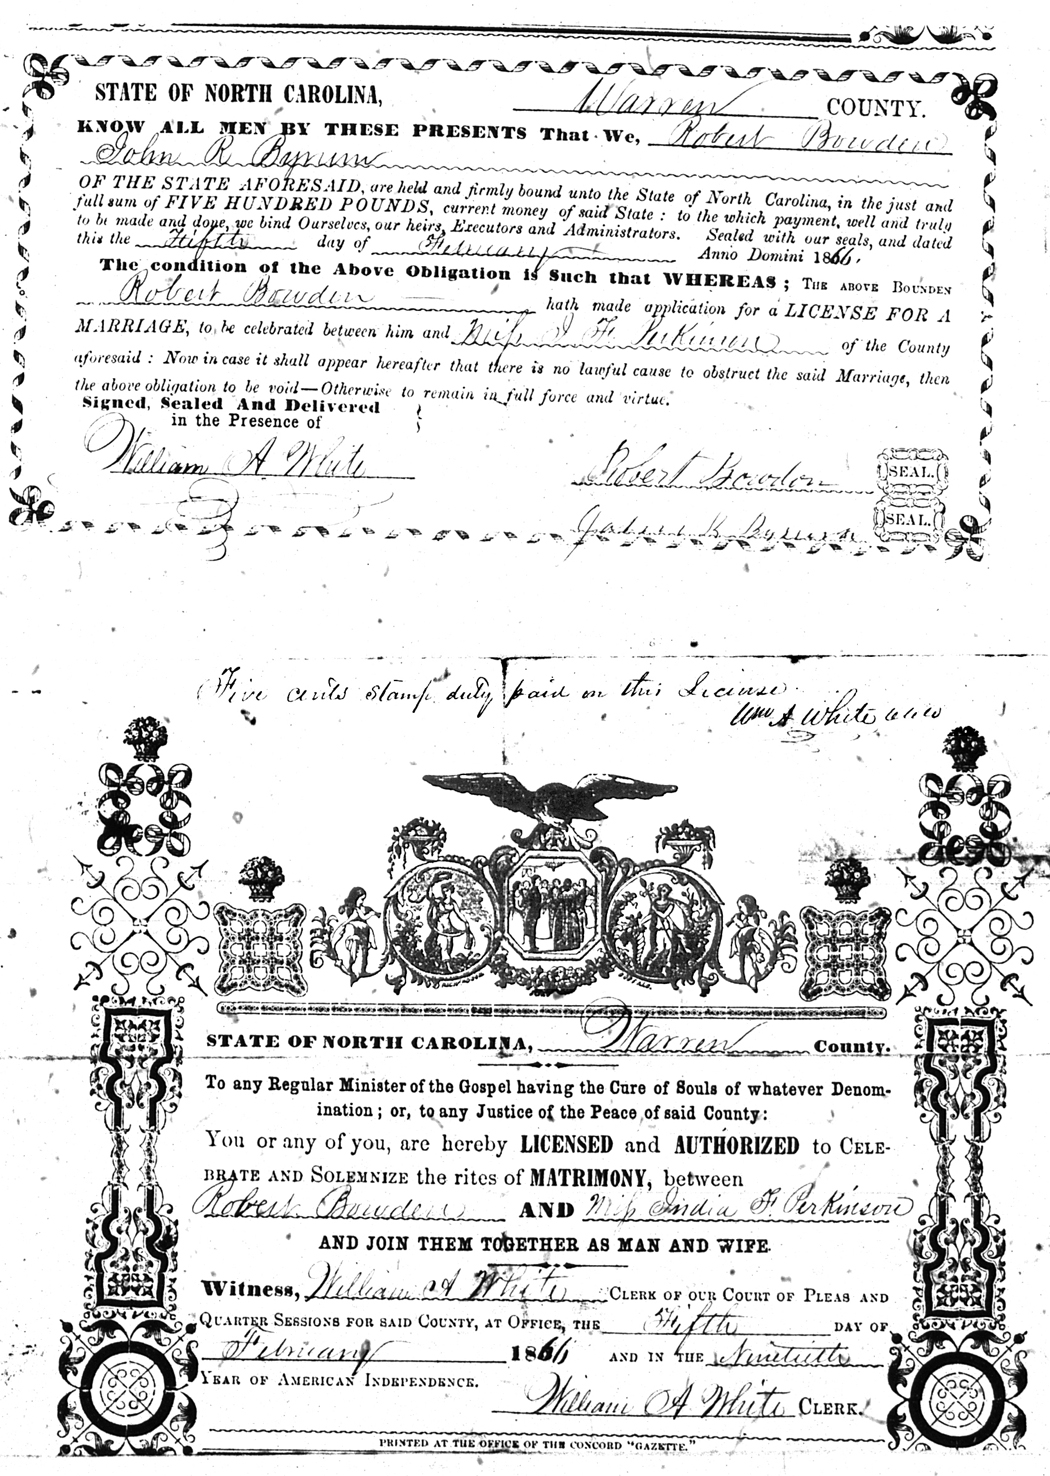 STATE OF NORTH CAROLINA, Warren COUNTY.
KNOW ALL MEN BY THESE PRESENTS That We, Robert Bowden
John R Bynum
OF THE STATE AFORESAID, are held and firmly bound unto the State of North Carolina, in the just and
full sum of FIVE HUNDRED POUNDS, current money of said State: to the which payment, well and truly
to be made and done, we bind Ourselves, our heirs, Executors and Administrators. Sealed with our seals, and dated
this the Fifth day of February Anno Domini 1866.
The condition of the Above Obligation is Such that WHEREAS; THE ABOVE BOUNDEN
Robert Bowden hath made application for a LICENSE FOR A
MARRIAGE, to be celebrated between him and Miss I F Perkinson of the County
aforesaid: Now in case it shall appear hereafter that there is no lawful cause to obstruct the said Marriage, then
the above obligation to be void—Otherwise to remain in full force and virtue.
Signed, Sealed And Delivered
in the Presence of
William A. White
Robert Bowdon SEAL.
John R Bynum SEAL.
Five cents stamp duty paid on this License
Wm A White
STATE OF NORTH CAROLINA, Warren County.
To any Regular Minister of the Gospel having the Cure of Souls of whatever Denom-
ination; or, to any Justice of the Peace of said County:
You or any of you, are hereby LICENSED and AUTHORIZED to CELE-
BRATE AND SOLEMNIZE the rites of MATRIMONY, between
Robert Bowden AND Miss India F. Perkinson
AND JOIN THEM TOGETHER AS MAN AND WIFE.
Witness, William A White CLERK OF OUR COURT OF PLEAS AND
QUARTER SESSIONS FOR SAID COUNTY, AT OFFICE, THE Fifth DAY OF
February 1866 AND IN THE Ninetieth
YEAR OF AMERICAN INDEPENDENCE.
William A White CLERK.
PRINTED AT THE OFFICE OF THE CONCORD "GAZETTE."